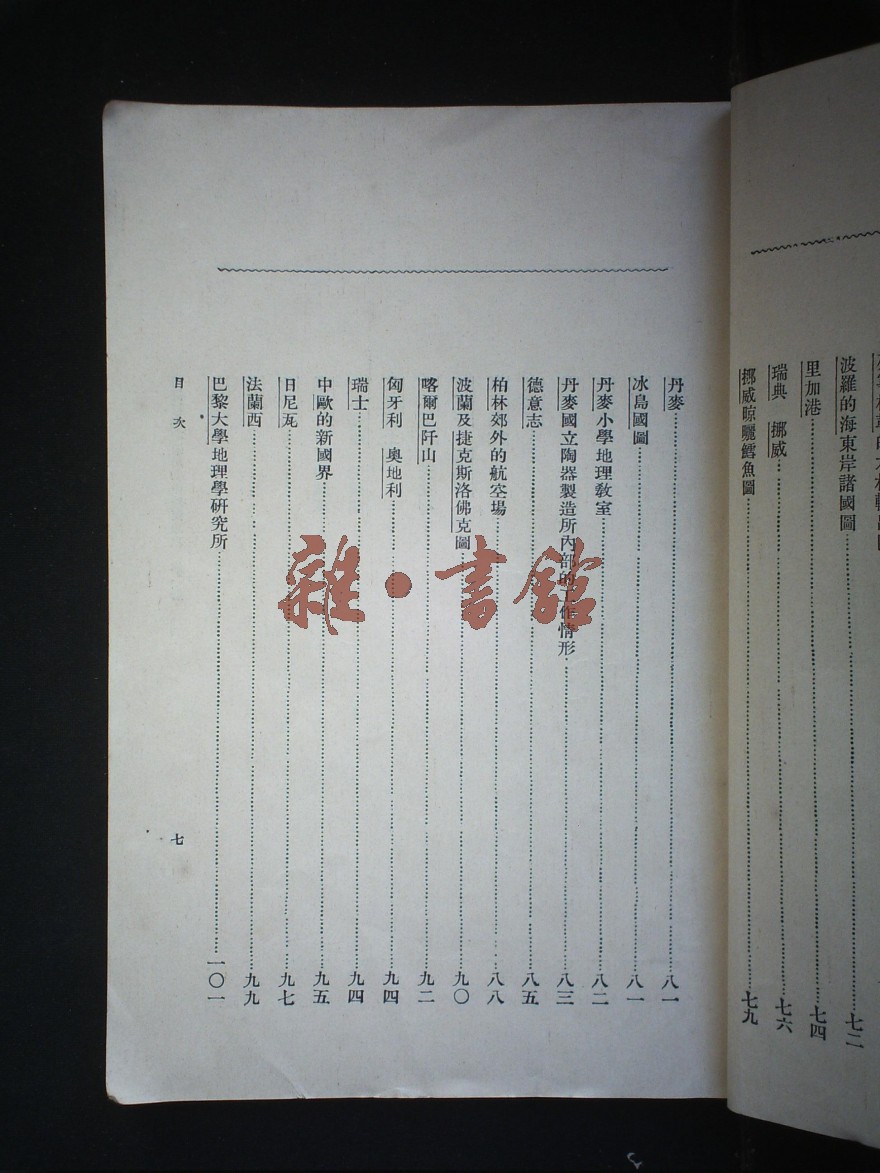 波羅的海東岸諸國圖……七二
里加港……七四
瑞典　挪威……七六
挪威晾曬鱈魚圖……七九
丹麥……八一
冰島國圖……八一
丹麥小學地理教室……八二
丹麥國立陶器製造所內部的工作情形……八三
德意志……八五
柏林郊外的航空場……八八
波蘭及捷克斯洛佛克圖……九〇
喀爾巴阡山……九二
匈牙利　奧地利……九四
瑞士……九四
中歐的新國界……九五
日尼瓦……九七
法蘭西……九九
巴黎大學地理學研究所……一〇一
目次
七
雜·書館